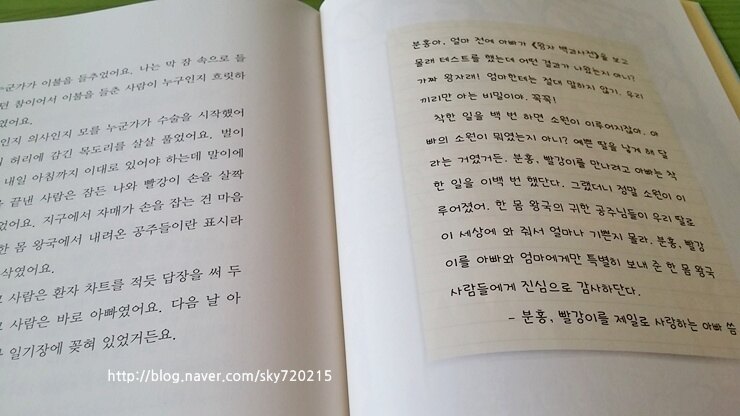 누군가가 이불을 들추었어요. 나는 막 잠 속으로 들
던 참이어서 이불을 들춘 사람이 누구인지 흐릿하
였어요.
인지 의사인지 모를 누군가가 수술을 시작했어
허리에 감긴 목도리를 살살 풀었어요. 벌이
내일 아침까지 이대로 있어야 하는데 말이에
끝낸 사람은 잠든 나와 빨강이 손을 살짝
었어요. 지구에서 자매가 손을 잡는 건 마음
한 몸 왕국에서 내려온 공주들이란 표시라
삭였어요.
사람은 환자 차트를 적듯 답장을 써 두
사람은 바로 아빠였어요. 다음 날 아
일기장에 꽂혀 있었거든요.
분홍아, 얼마 전에 아빠가 《왕자 백과사전》을 보고
몰래 테스트를 했는데 어떤 결과가 나왔는지 아니?
가짜 왕자래! 엄마한테는 절대 말하지 않기. 우리
끼리만 아는 비밀이야. 꼭꼭!
착한 일을 백 번 하면 소원이 이루어지잖아. 아
빠의 소원이 뭐였는지 아니? 예쁜 딸을 낳게 해 달
라는 거였거든. 분홍, 빨강이를 만나려고 아빠는 착
한 일을 이백 번 했단다. 그랬더니 정말 소원이 이
루어졌어. 한 몸 왕국의 귀한 공주님들이 우리 딸로
이 세상에 와 줘서 얼마나 기쁜지 몰라. 분홍, 빨강
이를 아빠와 엄마에게만 특별히 보내 준 한 몸 왕국
사람들에게 진심으로 감사하단다.
- 분홍, 빨강이를 제일로 사랑하는 아빠 씀
http://blog.naver.com/sky720215